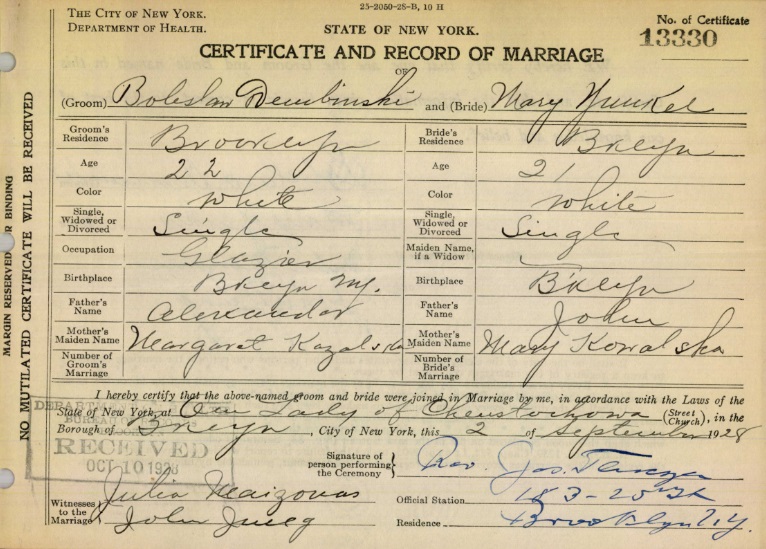 25-2050-28-B, 10 H
THE CITY OF NEW YORK.
DEPARTMENT OF HEALTH.
STATE OF NEW YORK.
No. of Certificate
13330
CERTIFICATE AND RECORD OF MARRIAGE
OF
(Groom) Boleslaw Dembinski and (Bride) Mary Yunkel
Groom's Residence Brooklyn Bride's Residence Bklyn
Age 22 Age 21
Color White Color White
Single, Widowed or Divorced Single Single, Widowed or Divorced Single
Occupation Glazier Maiden Name, if a Widow
Birthplace Bklyn N.Y. Birthplace B'klyn
Father's Name Alexander Father's Name John
Mother's Maiden Name Margaret Mother's Maiden Name Mary Kowalska
Number of Groom's Marriage Number of Bride's Marriage
I hereby certify that the above-named groom and bride were joined in Marriage by me, in accordance with the Laws of the
State of New York, at Our Lady of Chenstochowa (Street Church), in the
Borough of Bklyn, City of New York, this 2 of September 1928
DEPARTMENT
BUREAU
RECEIVED
OCT 10 1928
Signature of person performing the Ceremony Rev. Jos.
Witnesses to the Marriage Julia
John
Official Station 183-25th St
Residence Brooklyn N.Y.
MARGIN RESERVED FOR BINDING
NO MUTILATED CERTIFICATE WILL BE RECEIVED